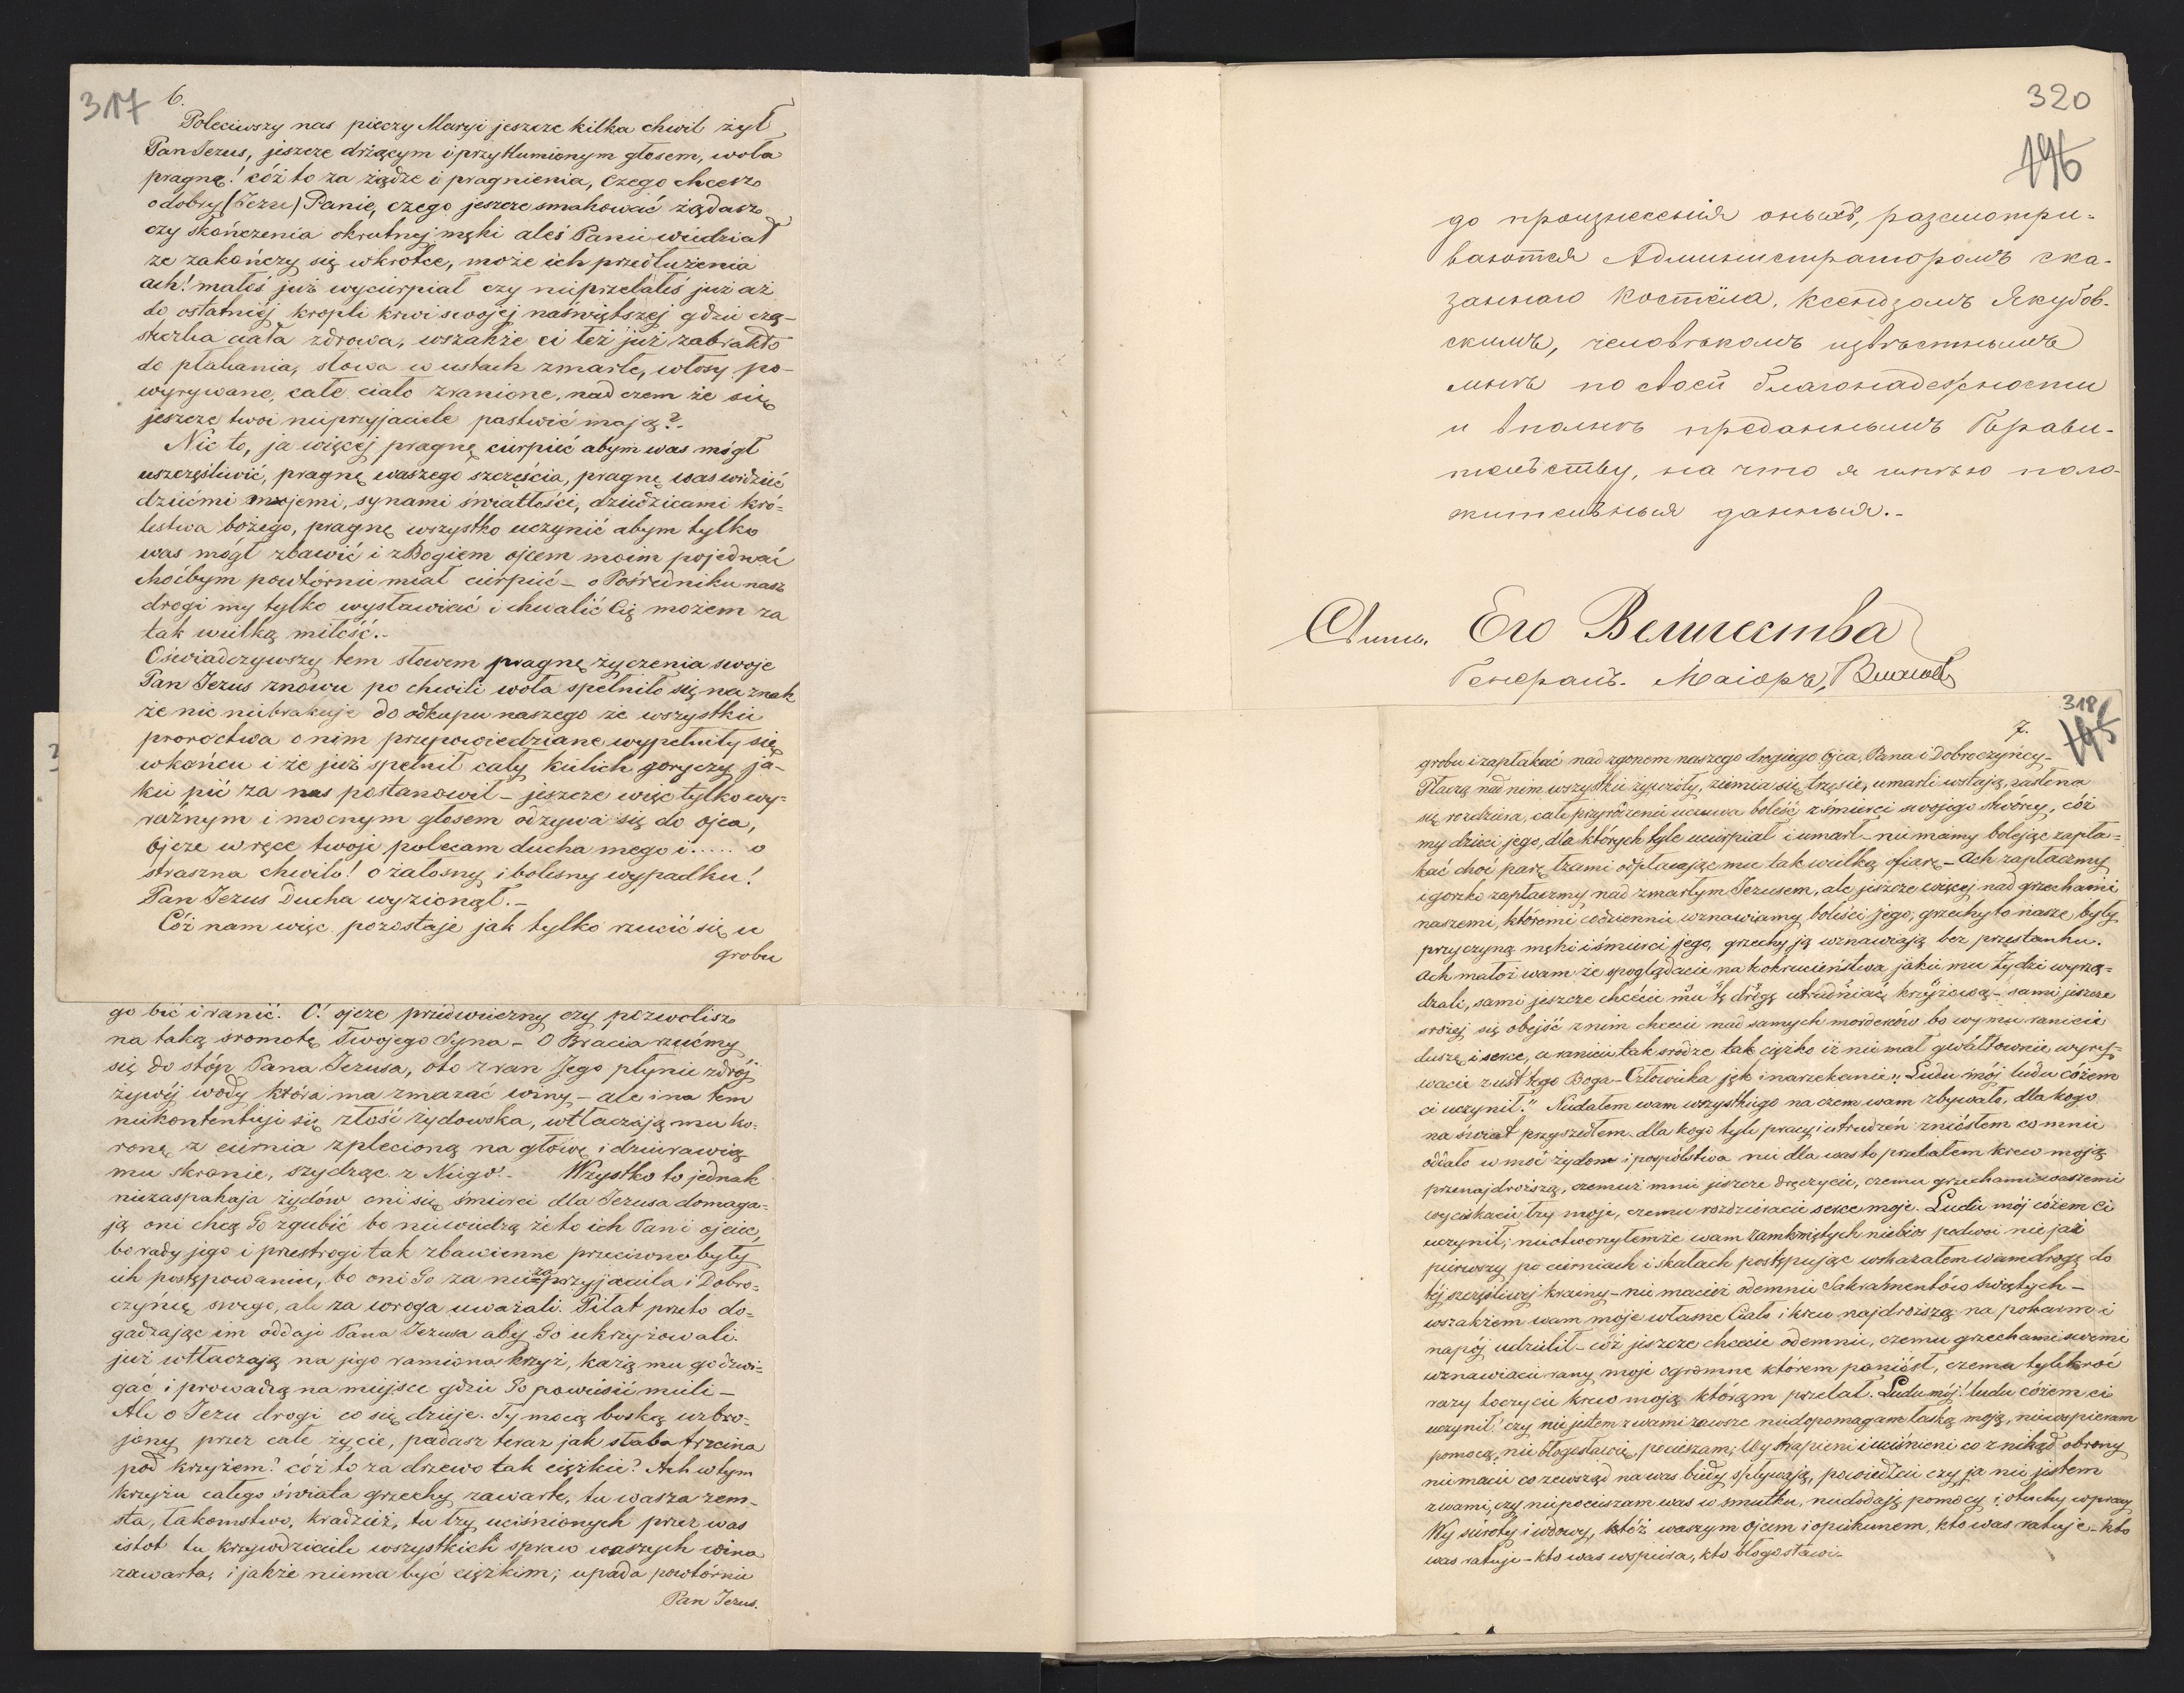 317
6.
Poleciwszy nas pieczy Maryi jeszcze kilka chwil żył
Pan Jezus, jeszcze drżącym i przytłumionym głosem, woła
pragnę! cóż to za żądze i pragnienia, czego chcesz
o dobry (Jezu) Panie, czego jeszcze smakować żądasz
czy skończenia okrutnej męki aleś Panie wiedział
że zakończy się wkrótce, może ich przedłużenia
ach! małoś już wycierpiał czy nieprzelałeś już aż
do ostatniéj kropli krwi swojéj najświętszej gdzie czą-
steczka ciała zdrowa, wszakże ci też już zabrakło
do płakania, słowa w ustach zmarłe, włosy po-
wyrywane, całe ciało zranione, nad czem że się
jeszcze twoi nieprzyjaciele pastwić mają?
Nic to, ja więcéj pragnę cierpieć abym was mógł
uszczęśliwić, pragnę waszego szczęścia, pragnę was widzieć
dziećmi mojemi, synami światłości, dziedzicami kró-
lestwa bożego, pragnę wszystko uczynić abym tylko
was mógł zbawić i z Bogiem ojcem moim pojednać
choćbym powtórnie miał cierpieć – o Pośredniku nasz
drogi my tylko wysławiać i chwalić Cię możem za
tak wielką miłość.-
Oświadczywszy tem słowem pragnę życzenia swoje
Pan Jezus znowu po chwili woła spełniło się na znak
że nic niebrakuje do odkupu naszego że wszystkie
proroctwa o nim przepowiedziane wypełniły się
wkońcu i że już spełnił cały kielich goryczy ja-
ki pić za nas postanowił – jeszcze więc tylko wy-
raźnym i mocnym głosem odzywa się do ojca,
ojcze w ręce twoje polecam ducha mego i..... o
straszna chwilo! o żałosny i bolesny wypadku!
Pan Jezus Ducha wyzionął.-
Cóż nam więc pozostaje jak tylko rzucić się u
grobu
go bić i ranić. O! ojcze przedwieczny czy pozwolisz
na taką sromotę Twojego Syna – O Bracia rzućmy
się do stóp Pana Jezusa, oto z ran Jego płynie zdrój
żywéj wody która ma zmazać winy – ale i na tem
niekontentuje się złość żydowska, wtłaczają mu ko-
ronę z ciernia zplecioną na głowę i dziurawią
mu skronie, szydząc z Niego!- Wszystko to jednak
niezaspakaja żydów oni się śmierci dla Jezusa domaga-
ją oni chcą Go zgubić bo niewiedzą że to ich Pan i ojciec,
bo rady jego i przestrogi tak zbawienne przeciwne były
ich postępowaniu, bo oni Go za nie za przyjaciela i Dobro-
czyńcę swego, ale za wroga uważali. Piłat przeto do-
gadzając im oddaje Pana Jezusa aby Go ukrzyżowali.
już wtłaczają na jego ramiona krzyż, każą mu go dźwi-
gać i prowadzą na miejsce gdzie Go powiesić mieli –
Ale o Jezu drogi co się dzieje. Ty mocą boską uzbro-
jony przez całe życie, padasz teraz jak słaba trzcina
pod krzyżem? cóż to za drzewo tak ciężkie? Ach w tym
krzyżu całego świata grzechy zawarte, tu wasza zem-
sta, łakomstwo, kradzież, tu łzy uciśnionych przez was
istot tu krzywdziciele wszystkich spraw waszych wina
zawarta, i jakże niema być ciężkim; upada powtórnie
Pan Jezus.
320
196
до произнесенія оныхъ, разсмотри-
ваются Администраторомъ ска-
заннаго Костёла, Ксендзомъ Якубов-
скимъ, человѣкомъ извѣстнымъ
мнѣ по своей благонадежности
и вполнѣ преданнымъ Прави-
тельству, на что я имѣю поло-
жительныя данныя.-
Свиты Его Величества
Генералъ-Маіоръ,
318
195
7.
grobu i zapłakać nad zgonem naszego drogiego Ojca, Pana i Dobroczyńcy –
Płaczą nad nim wszystkie żywioły, ziemia się trzęsie, umarli wstają, zasłona
się rozdziera, całe przyrodzenie uczuwa boleść z śmierci swojego stwórcy, cóż
my dzieci jego, dla których tyle ucierpiał i umarł – nie mamy bolejąc zapła-
kać choć parę łzami odpłacając mu tak wielką ofiarę – Ach zapłaczmy
i gorzko zapłaczmy nad zmarłym Jezusem, ale jeszcze więcej nad grzechami
naszemi, któremi codziennie wznawiamy boleści jego, grzechy to nasze były
przyczyną męki i śmierci jego, grzechy ją wznawiają bez przestanku.
Ach małoż wam że spoglądacie na te okrucieństwa jakie mu Żydzi wyrzą-
dzali, sami jeszcze chcecie mu tę drogę utrudniać krzyżową – sami jeszcze
srożej się obejść z nim chcecie nad samych morderców bo wy mu ranicie
duszę i serce, a ranicie tak srodze tak ciężko iż nie mal gwałtownie wyry-
wacie z ust tego Boga–Człowieka jęk i narzekanie „Ludu mój ludu cóżem
ci uczynił." Niedałem wam wszystkiego na czem wam zbywało, dla kogo
na świat przyszedłem. dla kogo tyle pracy i utrudzeń zniósłem co mnie
oddało w moc żydom i pospólstwa nie dla was to przelałem krew moją
przenajdroższą, czemuż mnie jeszcze dręczycie, czemu grzechami waszemi
wyciskacie łzy moje, czemu rozdzieracie serce moje. Ludu mój cóżem ci
uczynił; nieotworzyłemże wam zamkniętych niebios podwoi nie jaż
pierwszy po cierniach i skałach postępując wskazałem wam drogę do
téj szczęśliwej krainy – nie macież odemnie Sakramentów świętych –
wszakżem wam moje własne Ciało i krew najdroższą na pokarm i
napój udzielił – cóż jeszcze chcecie odemnie, czemu grzechami swemi
wznawiacie rany moje ogromne którem poniósł, czemu tylekroć
razy toczycie krew moją którąm przelał. Ludu mój! ludu cóżem ci
uczynił! czy nie jestem z wami zawsze niedopomagam łaską moją, niewspieram
pomocą, nie błogosławię, pocieszam; Wy strapieni i uciśnieni co znikąd obrony
niemacie co zewsząd na was biedy spływają, powiedzcie czy ja nie jestem
z wami, czy niepocieszam was w smutku, niedodaję pomocy i otuchy w pracy
Wy sieroty i wdowy, któż waszym ojcem i opiekunem, kto was ratuje – kto
was ratuje – kto was wspiera, kto błogosławi.-